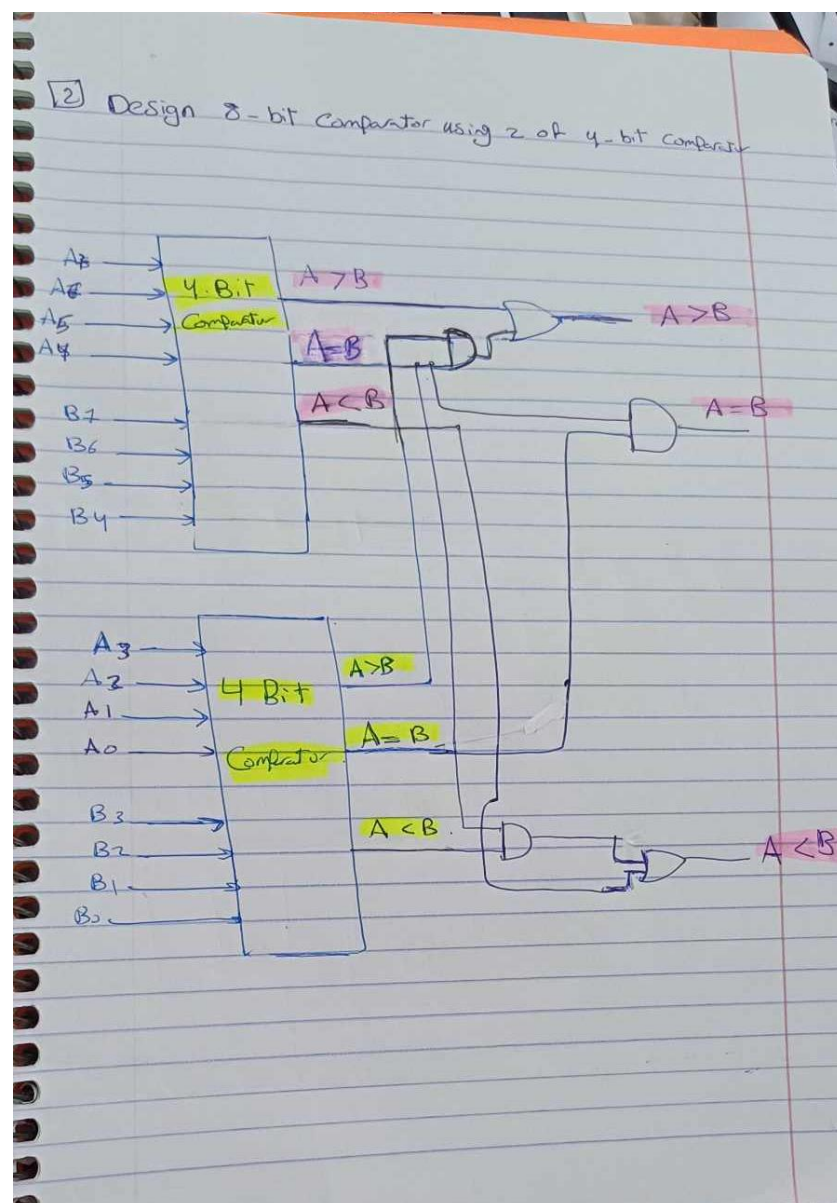 2 Design 8-bit Comparator using 2 of 4-bit Comparator
A7
A6
A5
A4
B7
B6
B5
B4
4-Bit
Comparator
A > B
A = B
A < B
A > B
A = B
A3
A2
A1
A0
B3
B2
B1
B0
4 Bit
Comparator
A>B
A = B
A < B
A < B